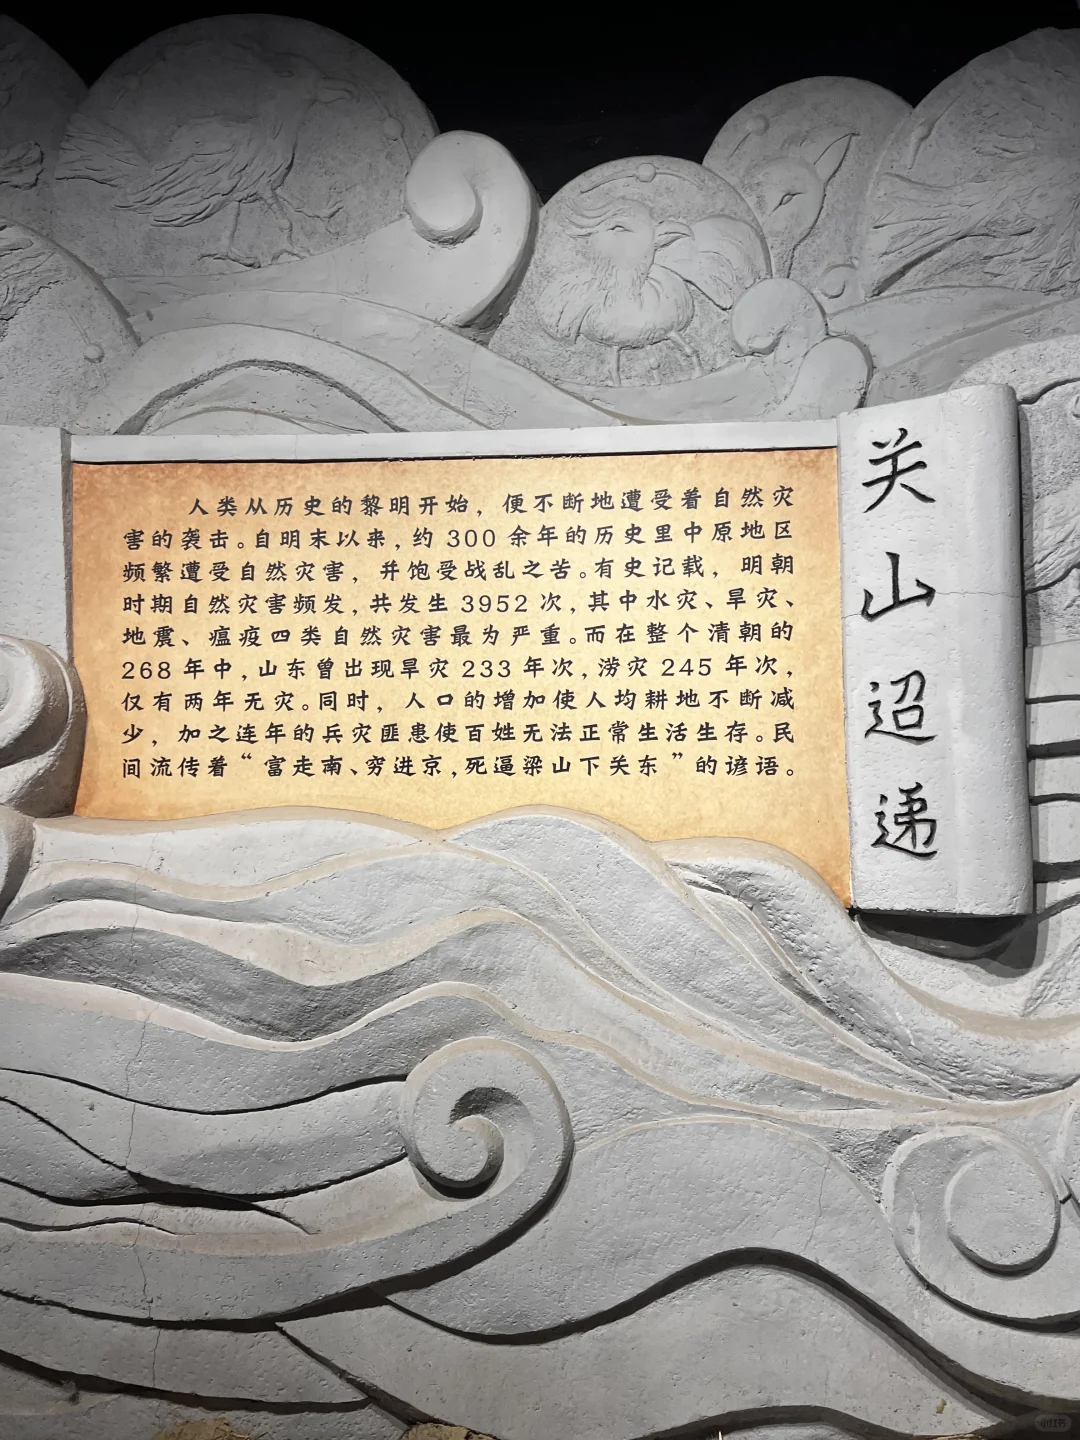 人类从历史的黎明开始，便不断地遭受着自然灾
害的袭击。自明末以来，约 300 余年的历史里中原地区
频繁遭受自然灾害，并饱受战乱之苦。有史记载，明朝
时期自然灾害频发，共发生 3952 次，其中水灾、旱灾、
地震、瘟疫四类自然灾害最为严重。而在整个清朝的
268 年中，山东曾出现旱灾 233 年次，涝灾 245 年次，
仅有两年无灾。同时，人口的增加使人均耕地不断减
少，加之连年的兵灾匪患使百姓无法正常生活生存。民
间流传着“富走南、穷进京，死逼梁山下关东”的谚语。
关山迢递
小红书